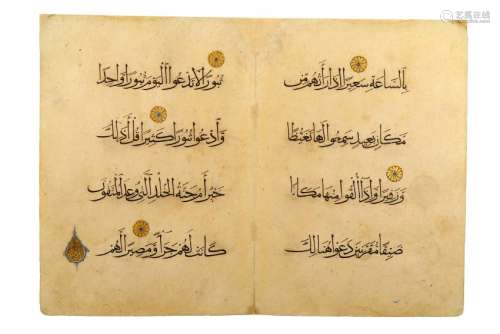 بالساعة سعيرا إذا رأتهم من
مكان بعيد سمعوا لها تغيظا
وزفيرا وإذا ألقوا منها مكانا
ضيقا مقرنين دعوا هنالك
ثبورا لا تدعوا اليوم ثبورا واحدا
وادعوا ثبورا كثيرا قل أذلك
خير أم جنة الخلد التي وعد المتقون
كانت لهم جزاء ومصيرا لهم